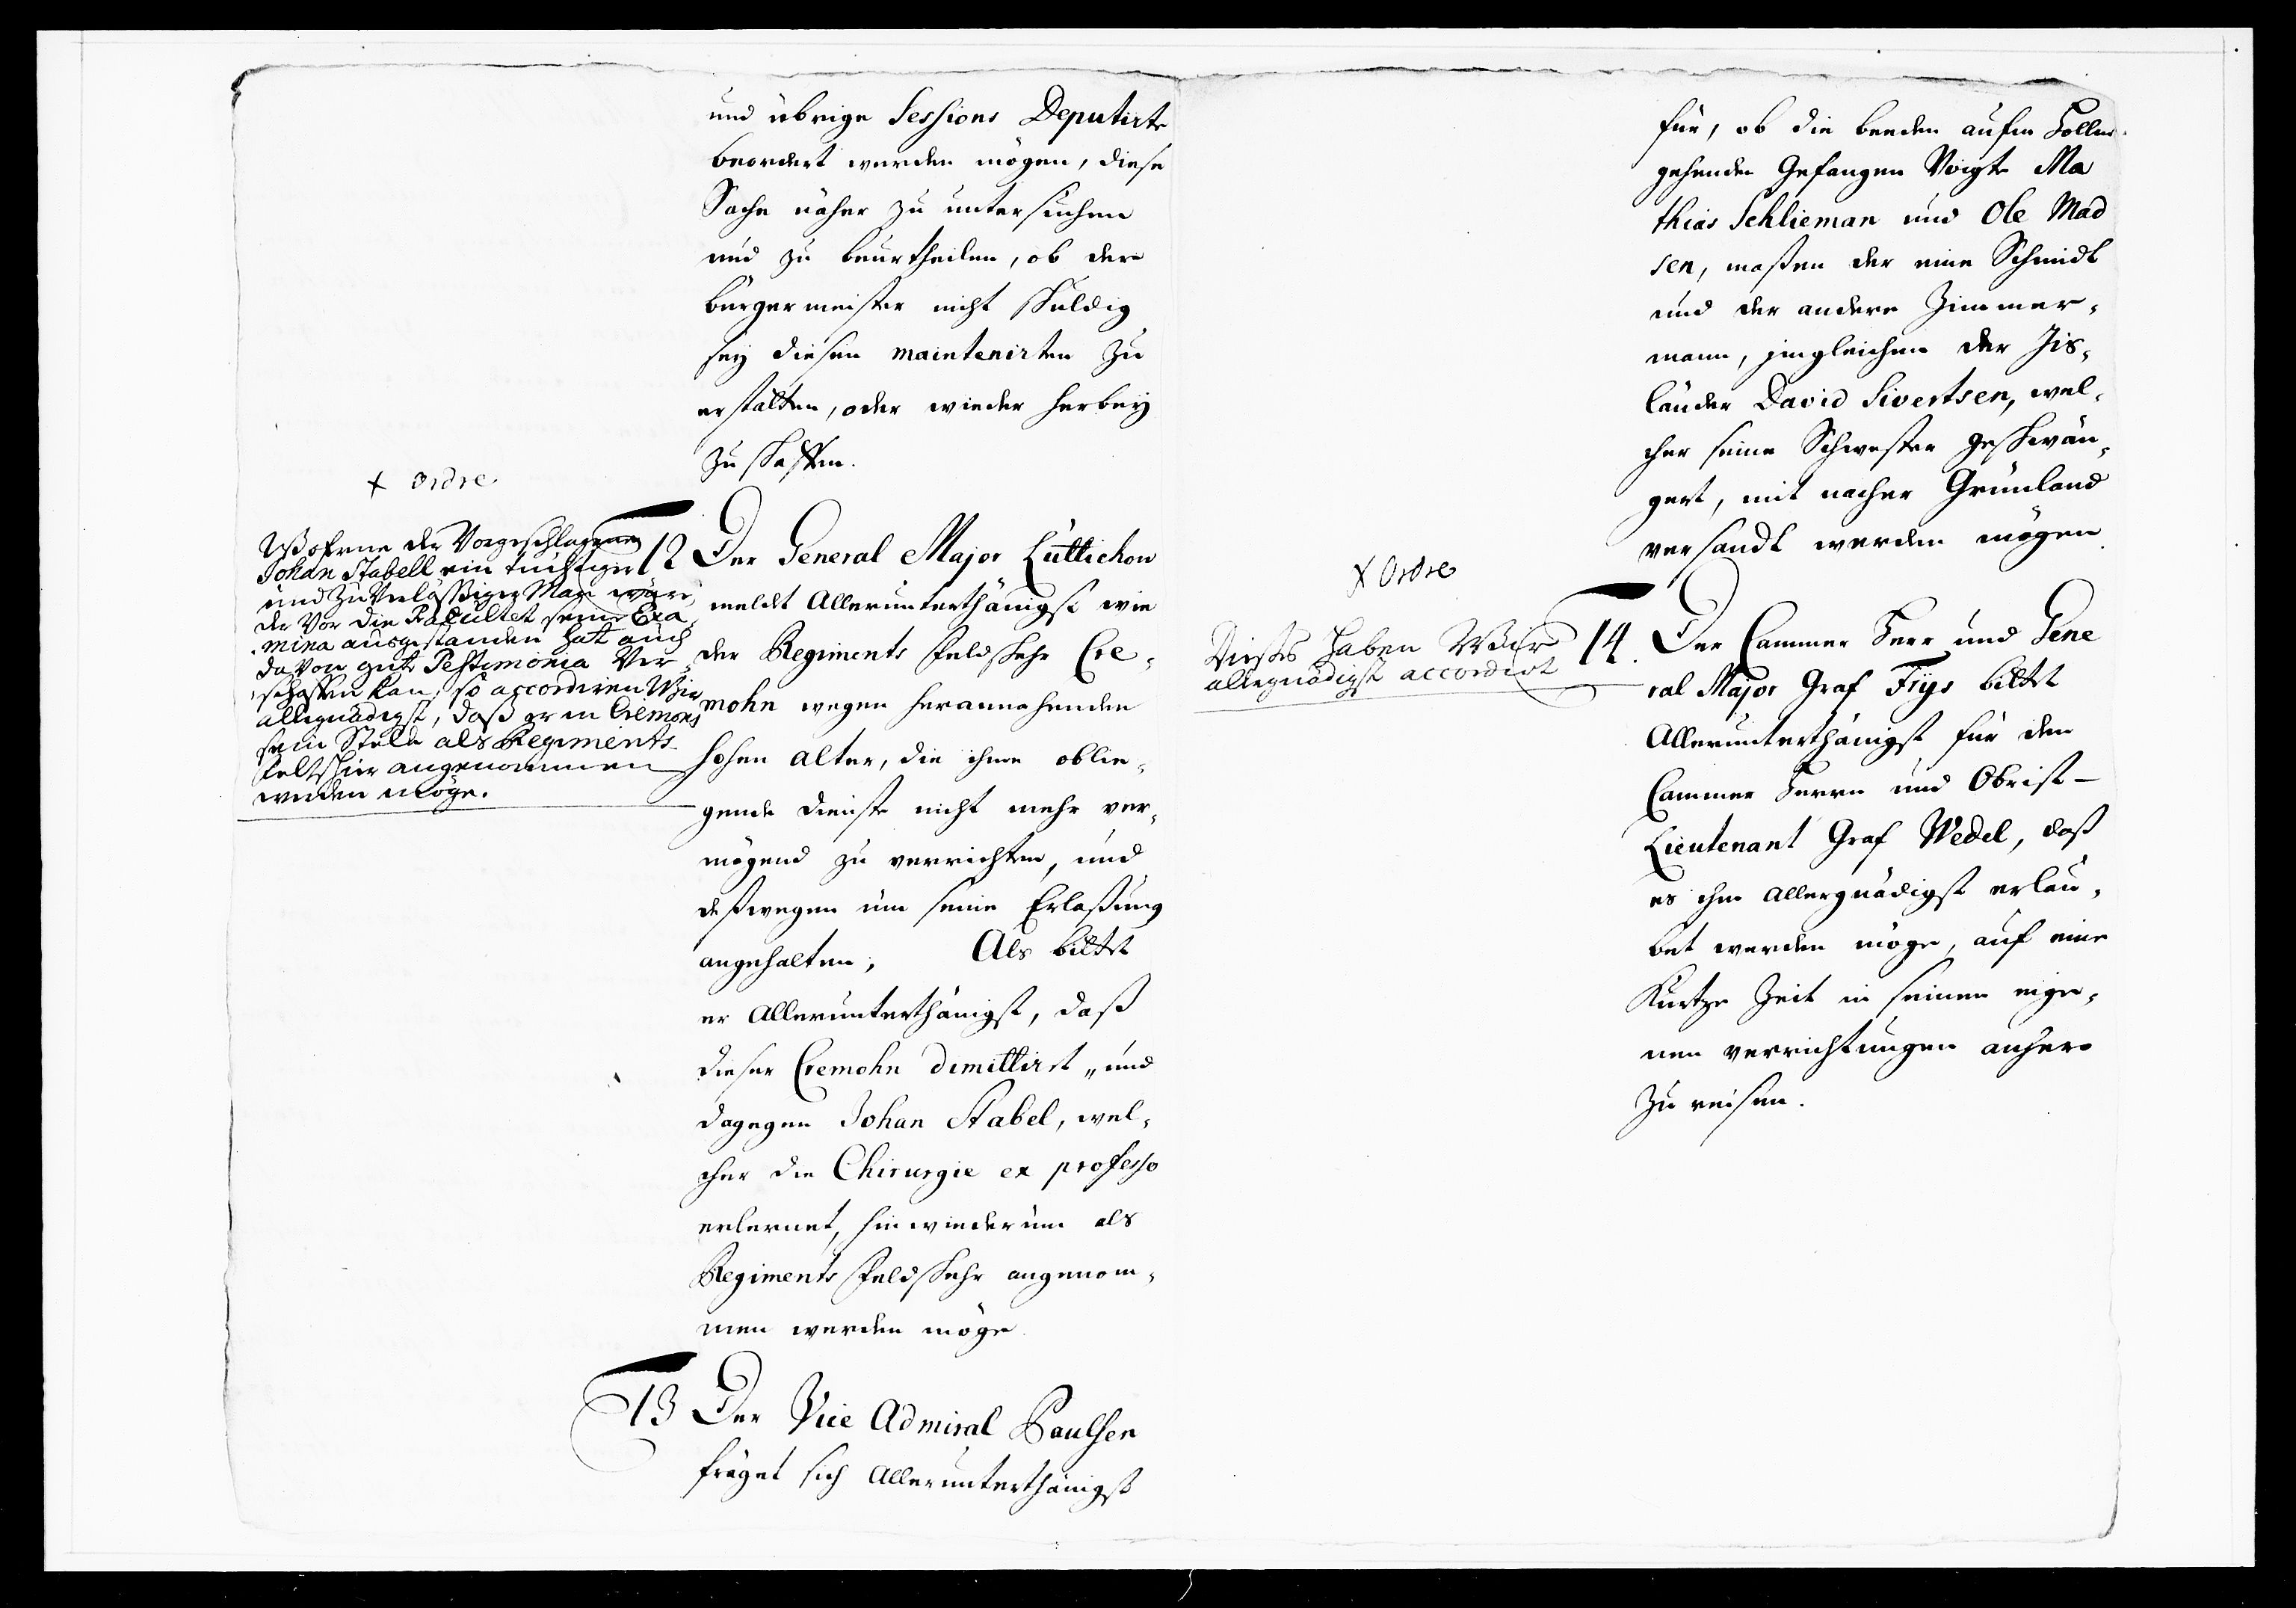 und übrige Sessions Deputirte
beordert werden mögen, diese
Sache näher zu untersuchen
und zu beurtheilen, ob der
bürgermeister nicht schuldig
sey diesen maintenirten zu
erstatten, oder wieder herbey
zu schaffen.
+ Ordre
Woferne der Vorgeschlagene
Johan Stabell ein tüchtiger
und zuverläßiger Man wäre,
der vor die Facultet seine Exa
mina ausgestanden hat auch
davon gute Testimonia ver
schaffen kan, so accordiren Wir
allergnädigst, daß er in Cremons
sein Stelle als Regiments
feltscher angenommen
werden möge.
12 Der General Major Lüttichow
meldt Allerunterthänigst wie
der Regiments feldschehr Cre¬
mohn wegen herannahenden
hohen alter, die ihme oblie¬
gende dienste nicht mehr ver¬
mögend zu verrichten, und
deßwegen um seine Erlaßung
angehalten; Als bittet
er Allerunterthänigst, daß
dieser Cremohn dimittirt, und
dagegen Johan Stabel, wel¬
cher die Chirurgie ex professo
erlernet, hinwiederum als
Regiments feldschehr angenom¬
men werden möge.
13 Der Vice Admiral Paulsen
fraget sich Allerunterthänigst
für, ob die beeden aufm Hollm
gehenden Gefangen Voigte Ma
thias Schlieman und Ole Mad
sen, maßen der eine Schmidt
und der andere Zimmer¬
mann, jmgleichen der Jis¬
länder David Sivertsen, wel¬
cher seine Schwester geschwän¬
gert, mit nacher Grünland
versandt werden mögen.
+ Ordre
Dieses haben Wir
allergnädigst accordirt
14. Der Cammer Herr und Gene
ral Major Graf Frys bittet
Allerunterthänigst für den
Cammer Herrn und Obrist-
Lieutenant Graf Wedel, daß
es ihm Allergnädigst erlau¬
bet werden möge, auf eine
Kurtze Zeit in seinen eige¬
nen verrichtungen anhero
zu reisen.